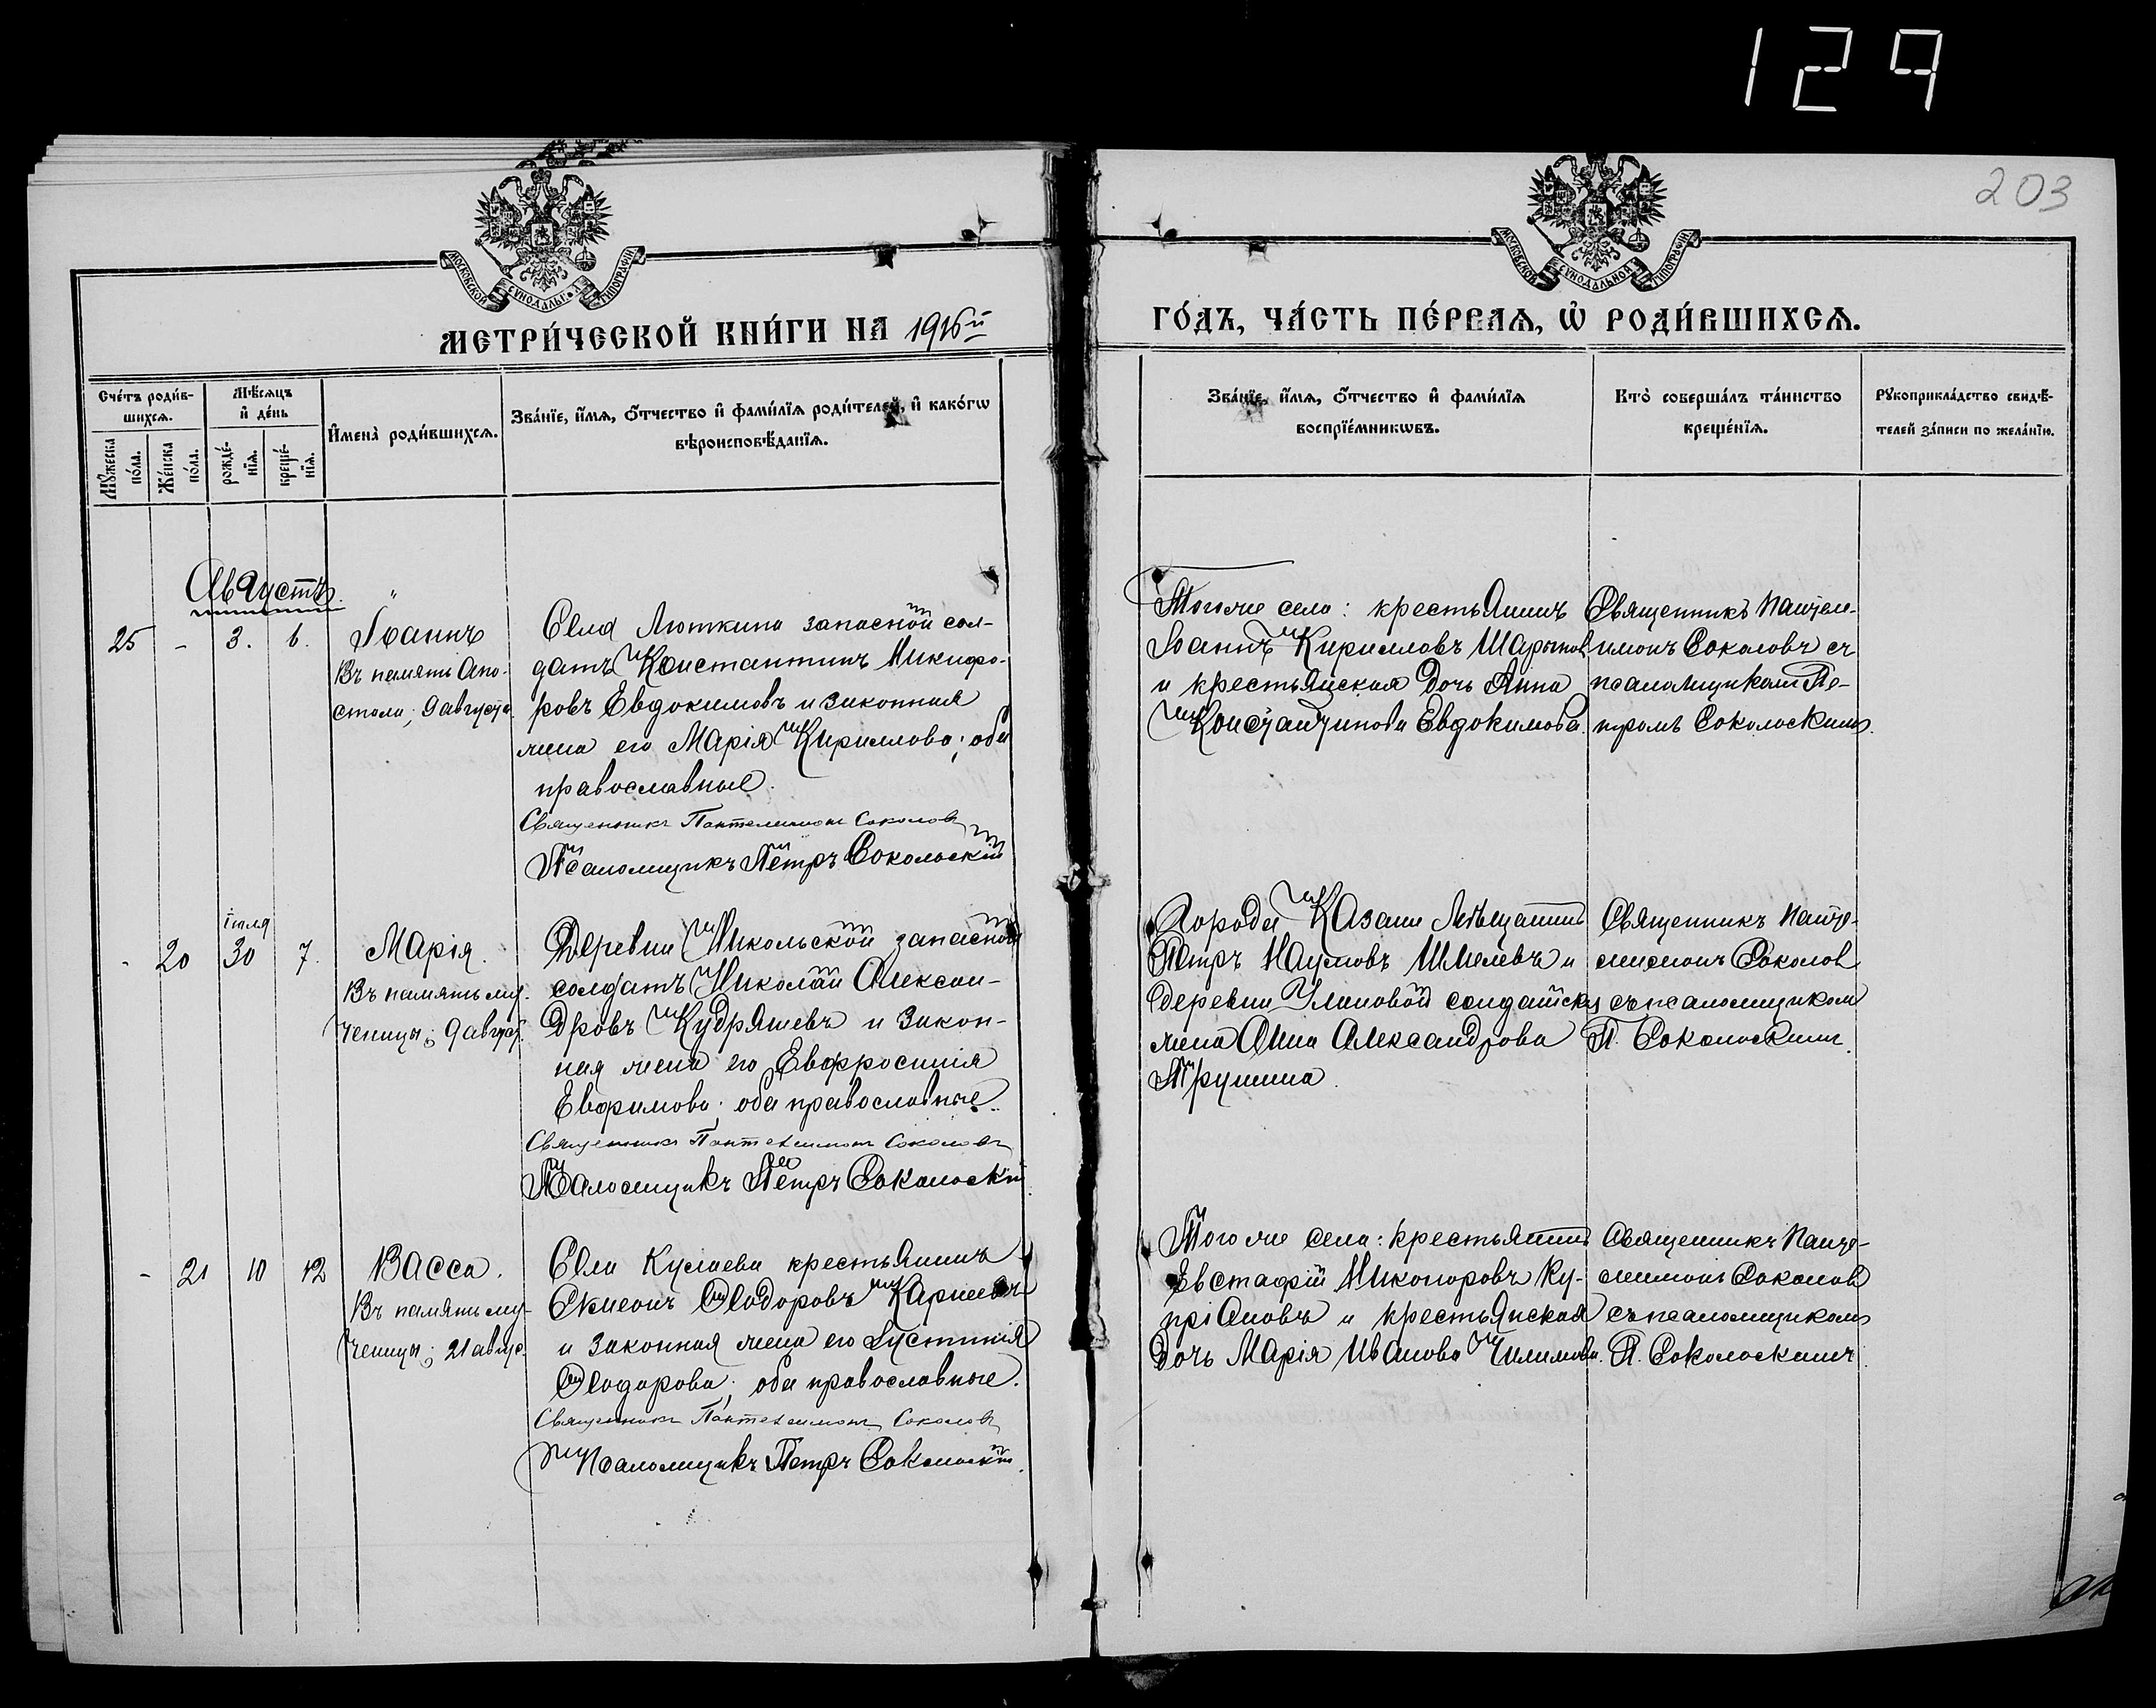 129
203
МОСКОВСКОЙ СѴНОДАЛЬНОЙ ТИПОГРАФІИ
МОСКОВСКОЙ СѴНОДАЛЬНОЙ ТИПОГРАФІИ
МЕТРИ́ЧЕСКОЙ КНИ́ГИ НА 1916й
ГО́ДЪ, ЧА́СТЬ ПЕ́РВАѦ, Ѡ҆ РОДИ́ВШИХСѦ.
Сче́тъ роди́в-
шихсѧ.
Мѣ́сѧцъ
и҆ де́нь
Мꙋ́жеска
по́ла.
Же́нска
по́ла.
рожде́-
нїѧ.
креще́-
нїѧ.
И҆мена̀ роди́вшихсѧ.
Зва́нїе, и҆́мѧ, ѻ҆́тчество и҆ фами́лїѧ роди́телей, и҆ како́гѡ
вѣроисповѣ́данїѧ.
Зва́нїе, и҆́мѧ, ѻ҆́тчество и҆ фами́лїѧ
воспрїе́мникѡвъ.
Кто̀ соверша́лъ та́инство
креще́нїѧ.
Рꙋкоприкла́дство свидѣ́-
телей за́писи по жела́нїю.
Августъ.
25 - 3. 6.
Іоаннъ
Въ память Апо-
стола; 9 августа
Села Люткина запасной сол-
датъ Константинъ Никифо-
ровъ Евдокимовъ и законная
жена его Марія Кириллова; оба
православные.
Священникъ Пантелеимонъ Соколовъ
Псаломщикъ Петръ Сокольскій
Тогоже села: крестьянинъ
Іоаннъ Кирилловъ Шарынов
и крестьянская дочь Анна
Константинова Евдокимова.
Священникъ Пантеле-
имонъ Соколовъ съ
псаломщикомъ Пе-
тромъ Сокольскимъ.
- 20 іюля 30 7.
Марія.
Въ память му-
ченицы; 9 август.
Деревни Никольской запасной
солдатъ Николай Алексан-
дровъ Кудряшевъ и закон-
ная жена его Евфросинія
Евфимова; оба православные.
Священникъ Пантелеимонъ Соколовъ
Псаломщикъ Петръ Сокольскій
Города Казани Мѣщанинъ
Петръ Наумовъ Шмелевъ и
деревни солдатская
жена Анна Александрова
Священникъ Панте-
леимонъ Соколов
съ псаломщиком
П. Сокольскимъ.
- 21 10 12
Васса.
Въ память му-
ченицы; 21 авгус.
Села крестьянинъ
Симеонъ Ѳеодоровъ
и законная жена его Іустинія
Ѳеодорова; оба православные.
Священникъ Пантелеимонъ Соколовъ
Псаломщикъ Петръ Сокольскій.
Того же села: крестьянинъ
Евстафій Никоноровъ Ку-
пріановъ и крестьянская
дочь Марія Иванова Чилимова.
Священникъ Панте-
леимонъ Соколов
съ псаломщикомъ
П. Сокольскимъ.